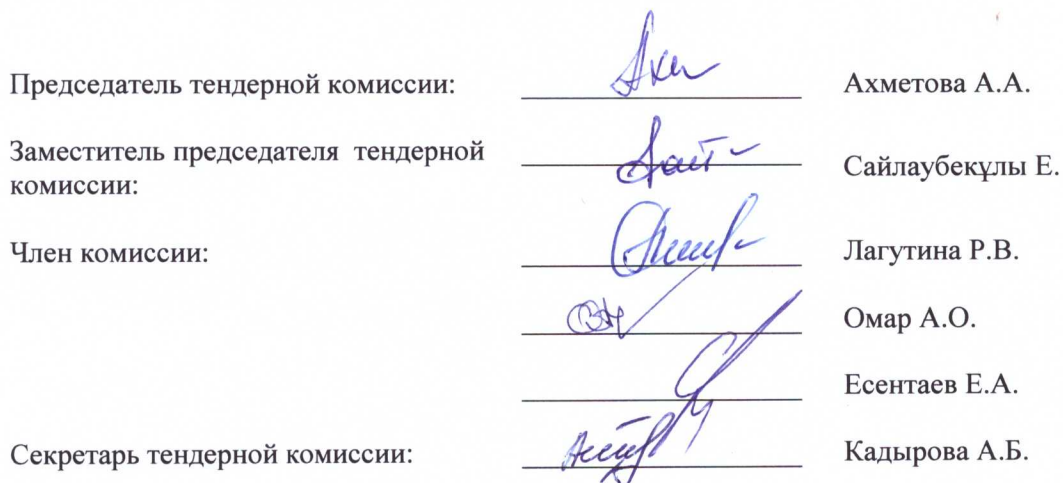 Председатель тендерной комиссии: Ахметова А.А.
Заместитель председателя тендерной
комиссии: Сайлаубекұлы Е.
Член комиссии: Лагутина Р.В.
Омар А.О.
Есентаев Е.А.
Секретарь тендерной комиссии: Кадырова А.Б.